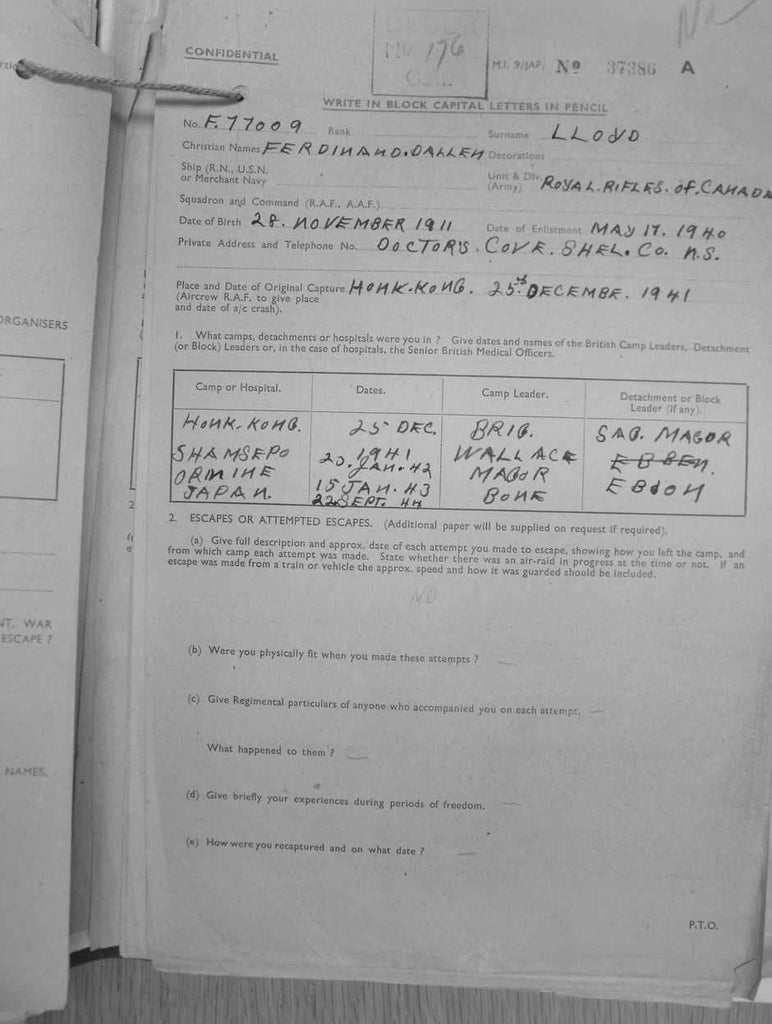 CONFIDENTIAL
176
M.I. 9/JAP/ No 37386 A
WRITE IN BLOCK CAPITAL LETTERS IN PENCIL
No. F.77009 Rank Surname LLOYD
Christian Names FERDINAND.DALLEN Decorations
Ship (R.N., U.S.N. or Merchant Navy
Unit & Div. (Army) ROYAL.RIFLES.OF.CANADA
Squadron and Command (R.A.F., A.A.F.)
Date of Birth 28. NOVEMBER 1911 Date of Enlistment MAY 17. 1940
Private Address and Telephone No. DOCTOR'S. COVE. SHEL. Co. N.S.
Place and Date of Original Capture HONK.KONG. 25th DECEMBE. 1941
(Aircrew R.A.F. to give place
and date of a/c crash).
1. What camps, detachments or hospitals were you in ? Give dates and names of the British Camp Leaders, Detachment
(or Block) Leaders or, in the case of hospitals, the Senior British Medical Officers.
Camp or Hospital. Dates. Camp Leader. Detachment or Block
Leader (if any).
HONK.KONG. 25 DEC. BRIG. SAG. MAGOR
SHAMSEPO 1941 WALLACE
20. JAN. 42
ORMINE 15 JAN. 43 MAGOR EBDON
JAPAN. 22 SEPT. 44 BONE
2. ESCAPES OR ATTEMPTED ESCAPES. (Additional paper will be supplied on request if required).
(a) Give full description and approx. date of each attempt you made to escape, showing how you left the camp, and
from which camp each attempt was made. State whether there was an air-raid in progress at the time or not. If an
escape was made from a train or vehicle the approx. speed and how it was guarded should be included.
NO
(b) Were you physically fit when you made these attempts ?
(c) Give Regimental particulars of anyone who accompanied you on each attempt.
What happened to them ?
(d) Give briefly your experiences during periods of freedom.
(e) How were you recaptured and on what date ?
P.T.O.
ORGANISERS
NT. WAR
ESCAPE ?
NAMES.
2